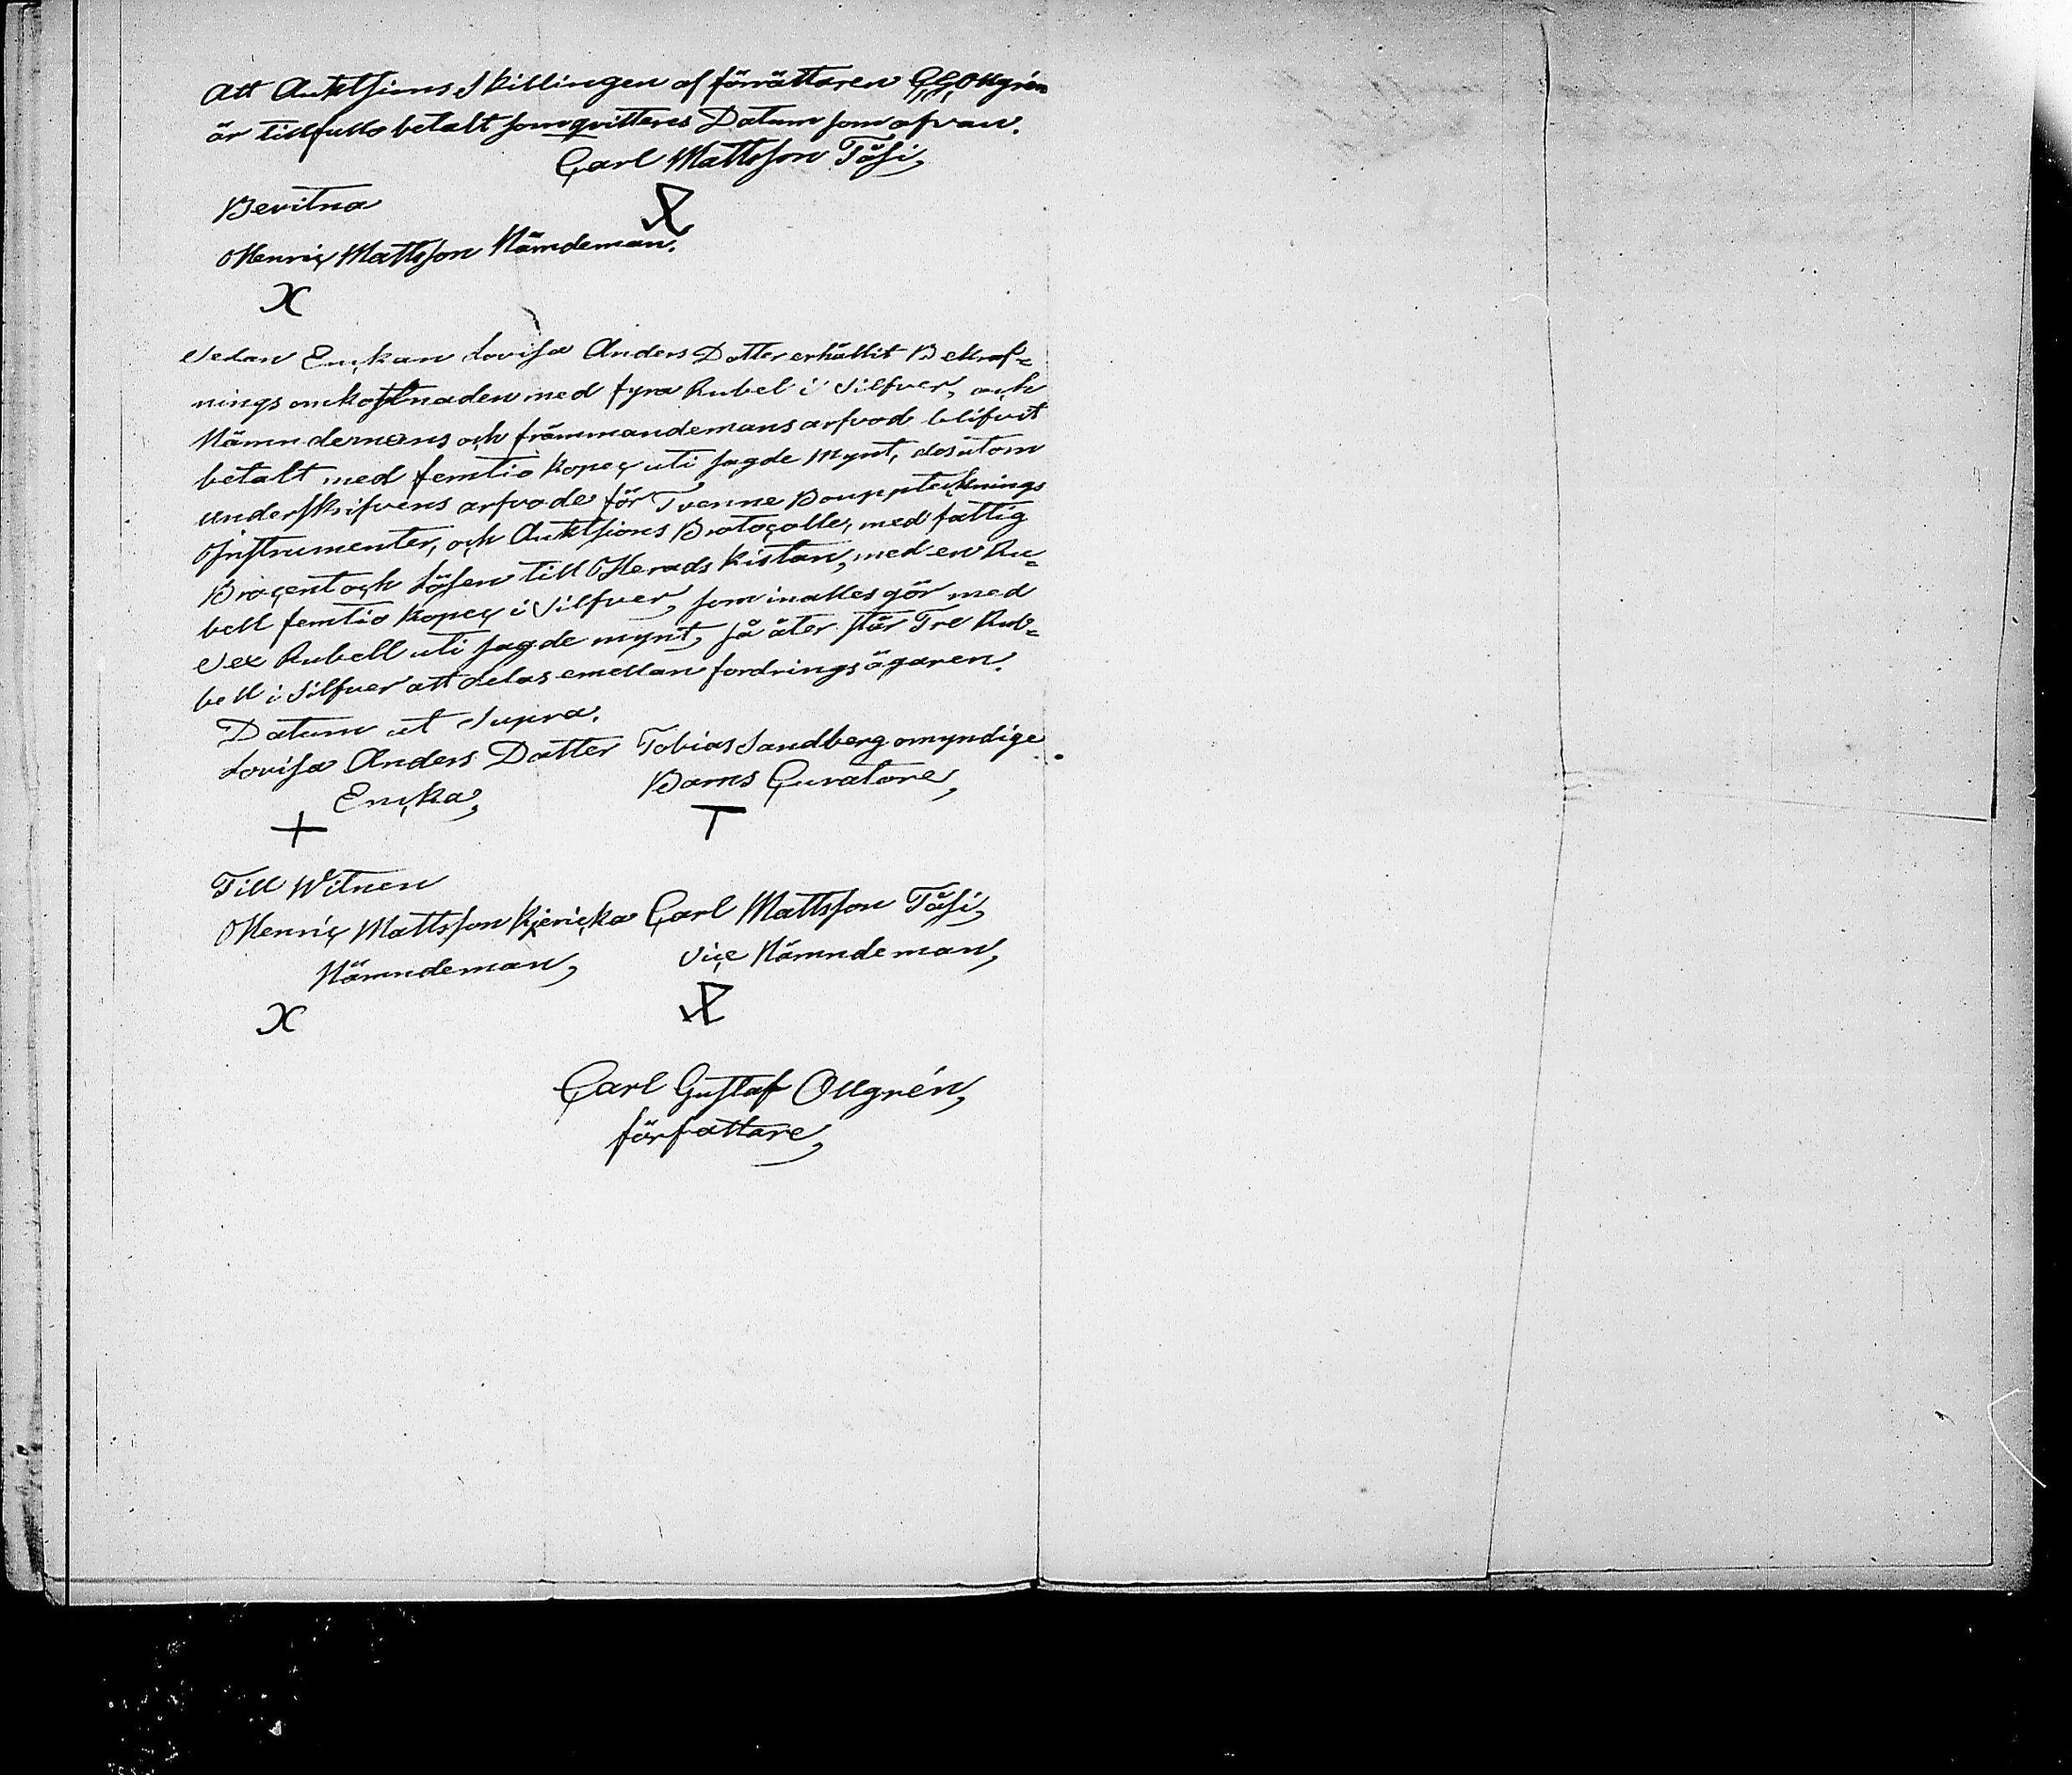 Att Auktsions Skillingen af förrättaren C G Ollgrén
är tillfullo betalt som qvitteres Datum som ofvan.
Carl Mattsson Täsi,
Bevitna
Henric Mattsson Nämdeman.
X
Sedan Enckan Lovisa Anders Dotter erhållit Bekraf=
nings omkostnaden med fyra Rubel i Silfver, och
Nämndemans och främmandemans arfvod blifvit
betalt med femtio kopec uti sagde Mynt, desutom
underskrifvens arfvode för Tvenne Bouppteknings
Instrumenter, och Auktsions Protocolle, med fattig
Procent och Lösen till Herads Kistan, med en Ru=
bell femtio Kopec i Silfver, som inalles gör med
Sex Rubell uti sagde mynt, så åter står Tre Rub=
bell i Silfver att delas emellan fordringsägaren.
Datum ut Supra.
Lovisa Anders Datter Tobias Sandberg omyndige
Encka, Barns Curatore,
+ T
Till Witnen
Henric Mattsson Kjericka Carl Mattsson Täsi,
Nämndeman, Vice Nämndeman,
X
Carl Gustaf Ollgrén,
författare,